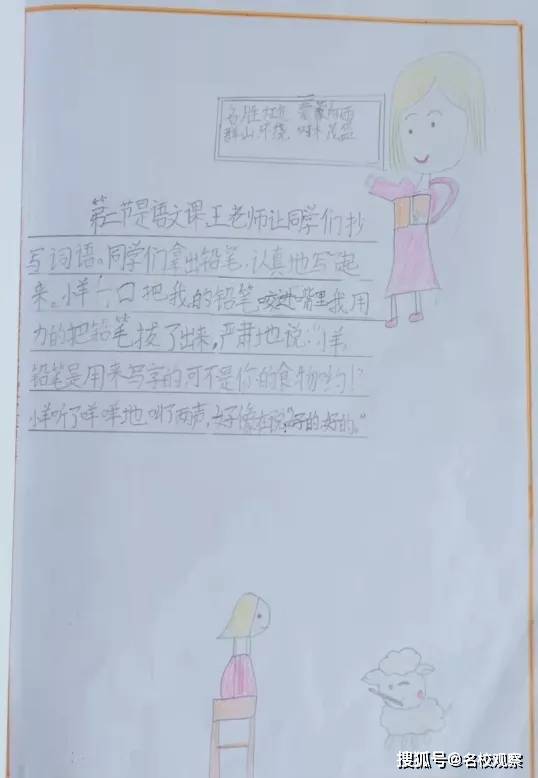 名胜古迹
群山环绕
第二节是语文课,王老师让同学们抄
写词语。同学们拿出铅笔,认真地写起
来。小羊一口把我的铅笔咬进嘴里,我用
力的把铅笔拔了出来,严肃地说:“小羊,
铅笔是用来写字的可不是你的食物哟!”
小羊听了咩咩地叫了两声,好像在说“好的好的。”
搜狐号@名校观察